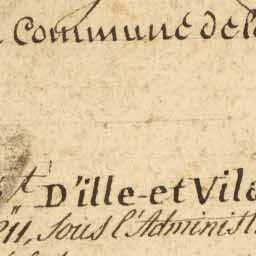 Commune de
t D'ille-et Vil
en, sous l'Administ